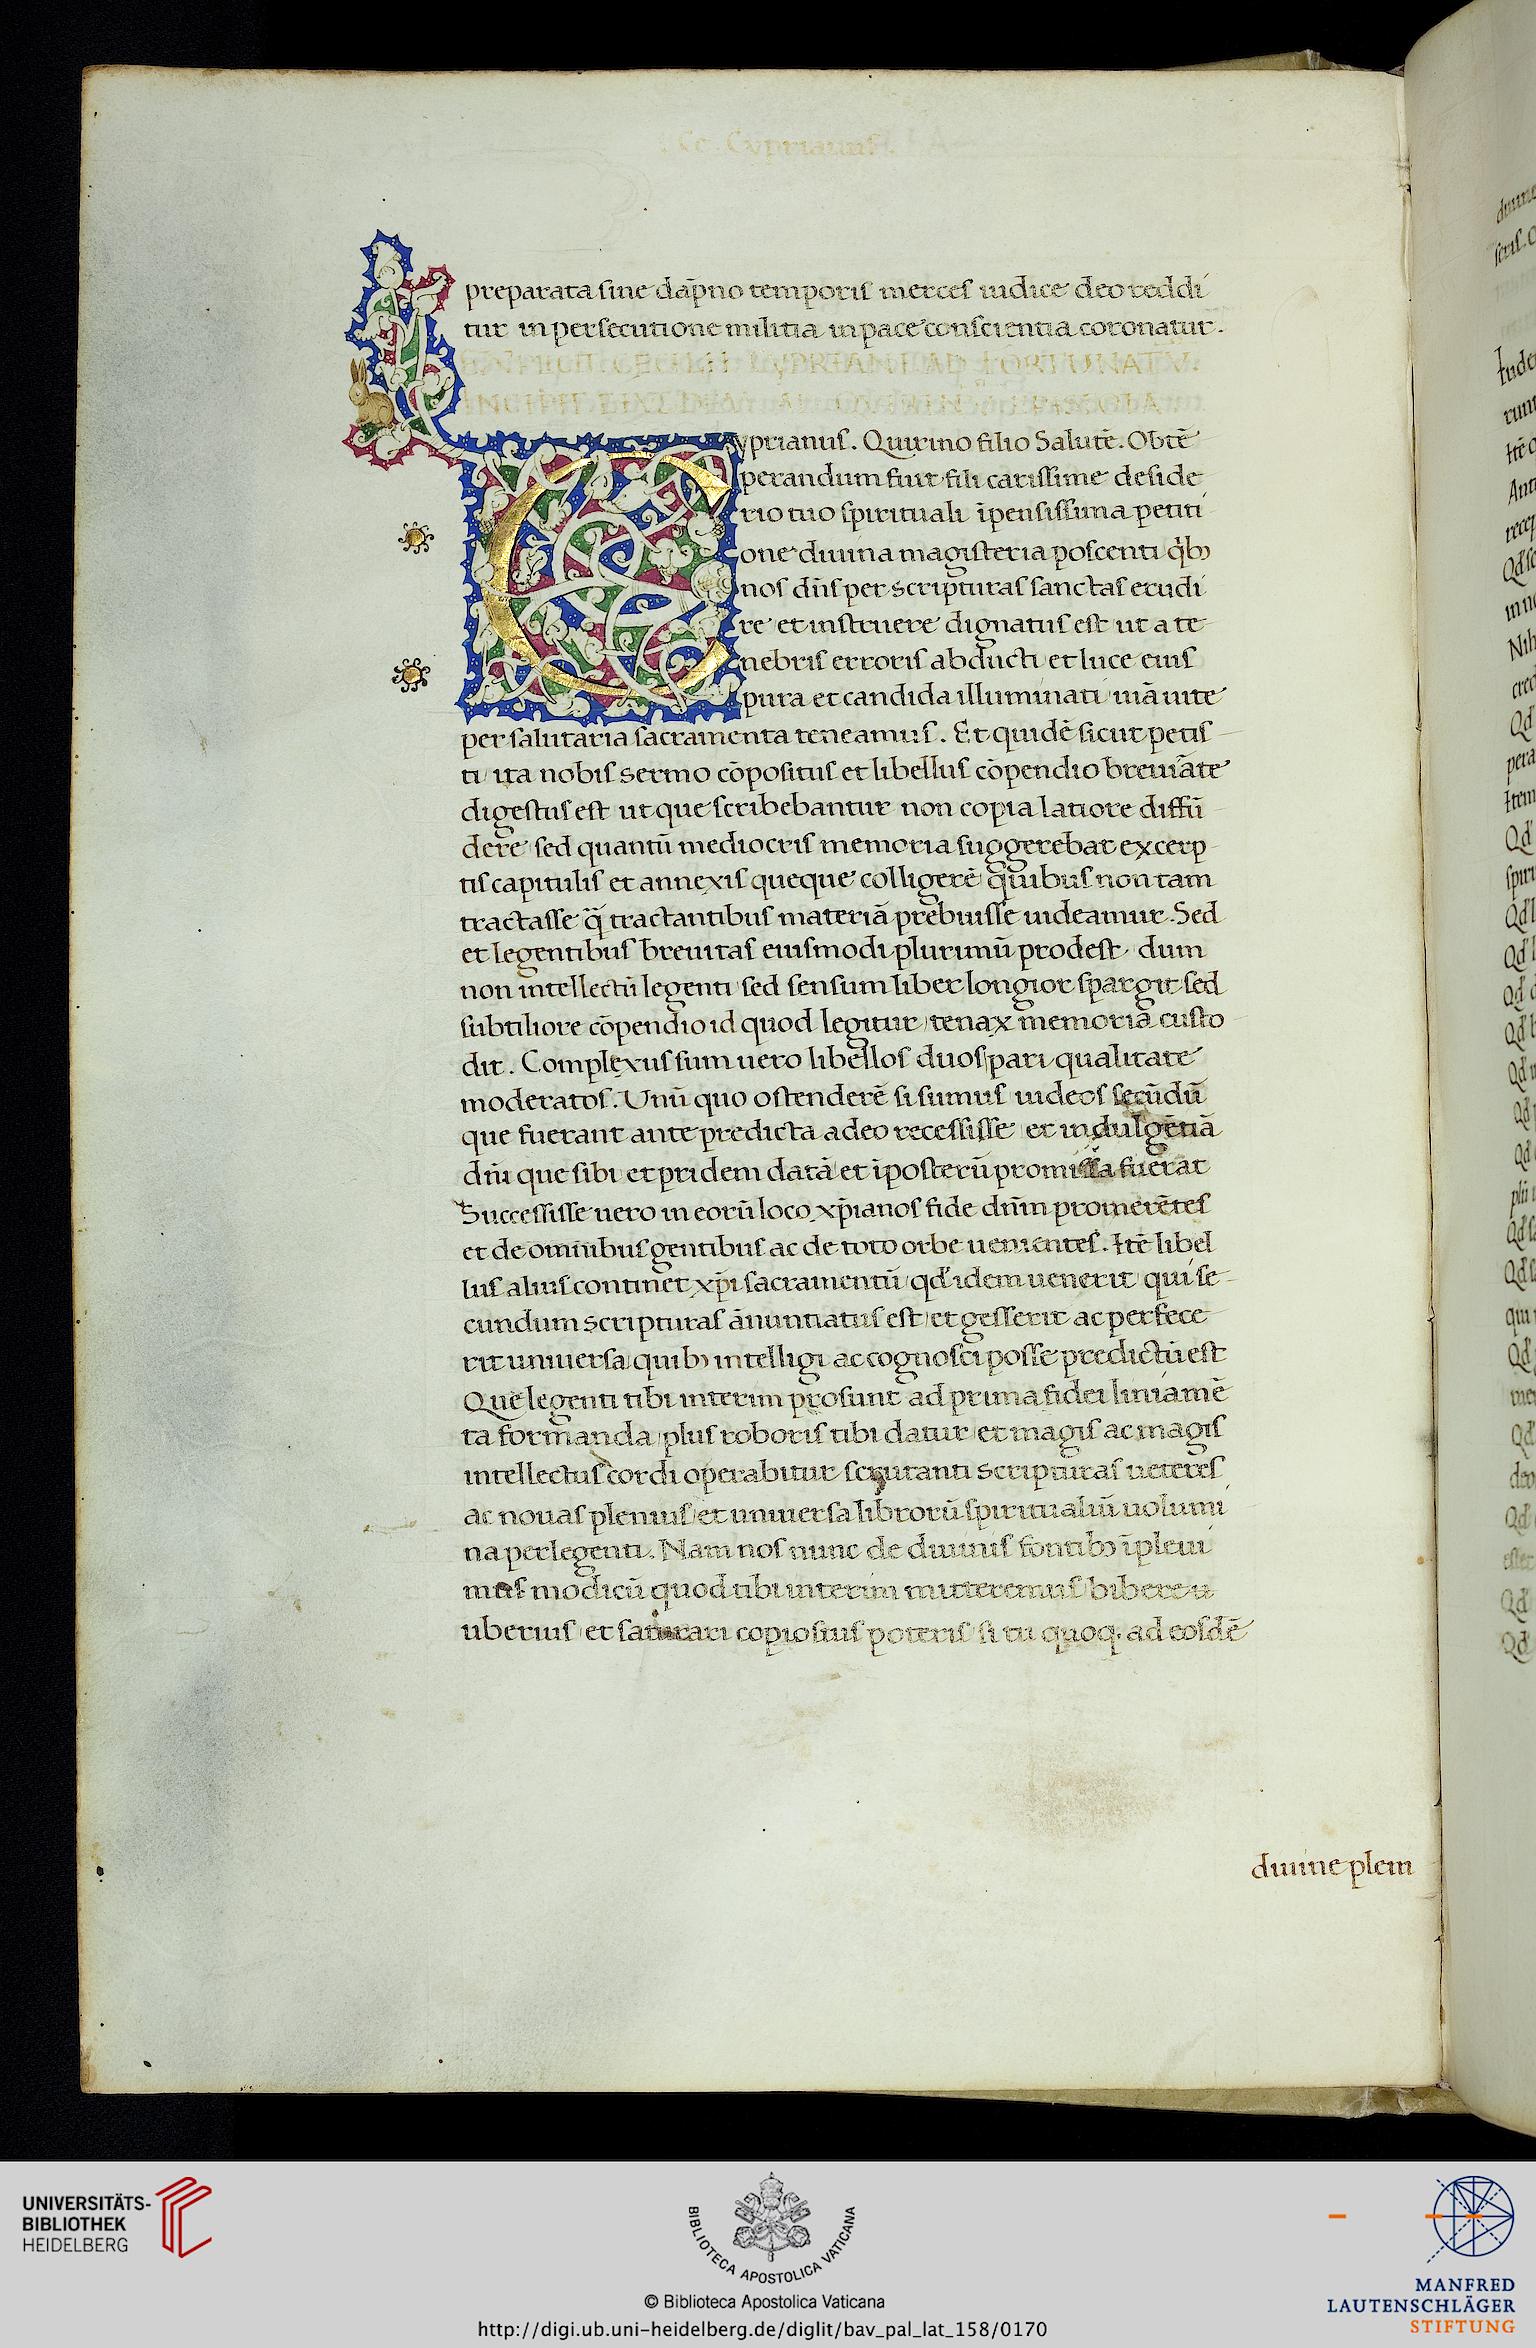 Cypriani
preparata sine dāpno temporis merces iudice deo reddi
tur in persecutione militia in pace conscientia coronatur.
EXPLICIT CECILII CYPRIANI AD FORTUNATV̄.
INCIPIT
Cyprianus. Quirino filio Salutē. Obtē
perandum fuit fili carissime deside
rio tuo spirituali īpensissima petiti
one diuina magisteria poscenti q̄bꝫ
nos dn̄s per scripturas sanctas erudi
re et instruere dignatus est ut a te
nebris erroris abducti et luce eius
pura et candida illuminati uiā uite
per salutaria sacramenta teneamus. Et quidē sicut petis
ti ita nobis sermo cōpositus et libellus cōpendio breuiāte
digestus est ut que scribebantur non copia latiore diffū
dere sed quantū mediocris memoria suggerebat excerp
tis capitulis et annexis queque colligerē quibus non tam
tractasse q̄ tractantibus materiā prebuisse uideamur. Sed
et legentibus breuitas eiusmodi plurimū prodest dum
non intellectū legenti sed sensum liber longior spargit sed
subtiliore cōpendio id quod legitur tenax memoria custo
dit. Complexus sum uero libellos duos pari qualitate
moderatos. Unū quo ostenderē si sumus iudeos secūdū
que fuerant ante predicta a deo recessisse et indulgētiā
dn̄i que sibi et pridem datā et īposterū promissa fuerat
Successisse uero in eorū loco xp̄ianos fide dn̄m promerētes
et de omnibus gentibus ac de toto orbe uenientes. Itē libel
lus alius continet xp̄i sacramentū qd̄ idem uenerit qui se
cundum scripturas ānuntiatus est et gesserit ac perfece
rit uniuersa quibꝫ intelligi ac cognosci posse predictū est
Que legenti tibi interim prosunt ad prima fidei liniamē
ta formanda plus roboris tibi datur et magis ac magis
intellectus cordi operabitur scrutanti scripturas ueteres
ac nouas plenius et uniuersa librorū spiritualiū uolumi
na perlegenti. Nam nos nunc de diuinis fontibꝫ īpleui
mus modicū quod tibi interim mitteremus bibere u
uberius et saturari copiosius poteris si tu quoq. ad eosdē
diuine plem
UNIVERSITÄTS-
BIBLIOTHEK
HEIDELBERG
BIBLIOTECA APOSTOLICA VATICANA
© Biblioteca Apostolica Vaticana
http://digi.ub.uni-heidelberg.de/diglit/bav_pal_lat_158/0170
MANFRED
LAUTENSCHLÄGER
STIFTUNG